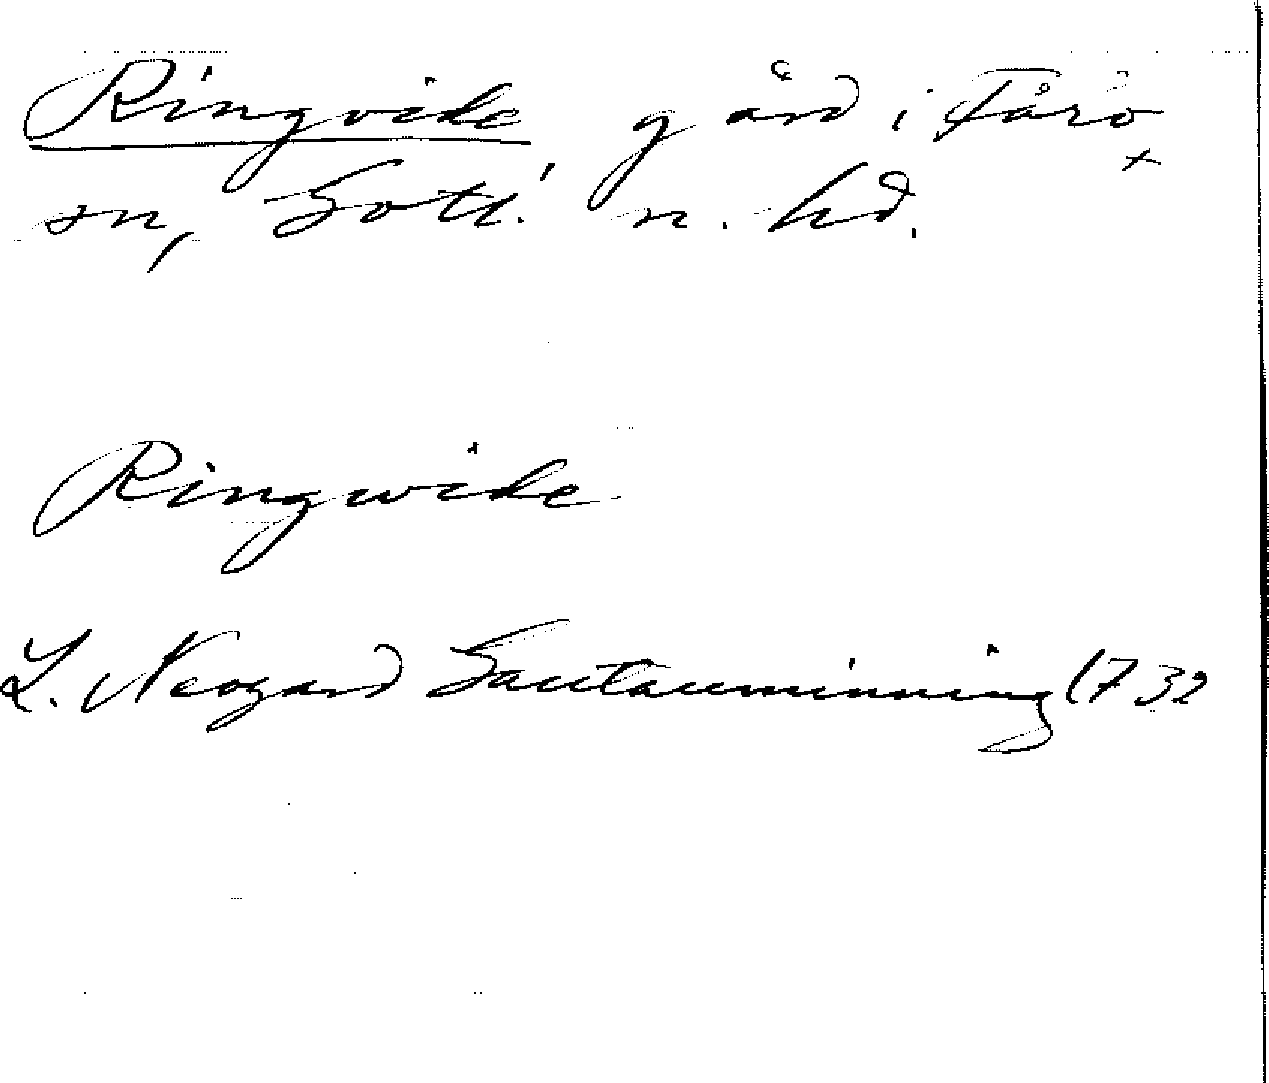 Ringvide gård i Fårö
sn, Gotl. n. hd.
Ringwide
L. Neogard Gautauminning 1732